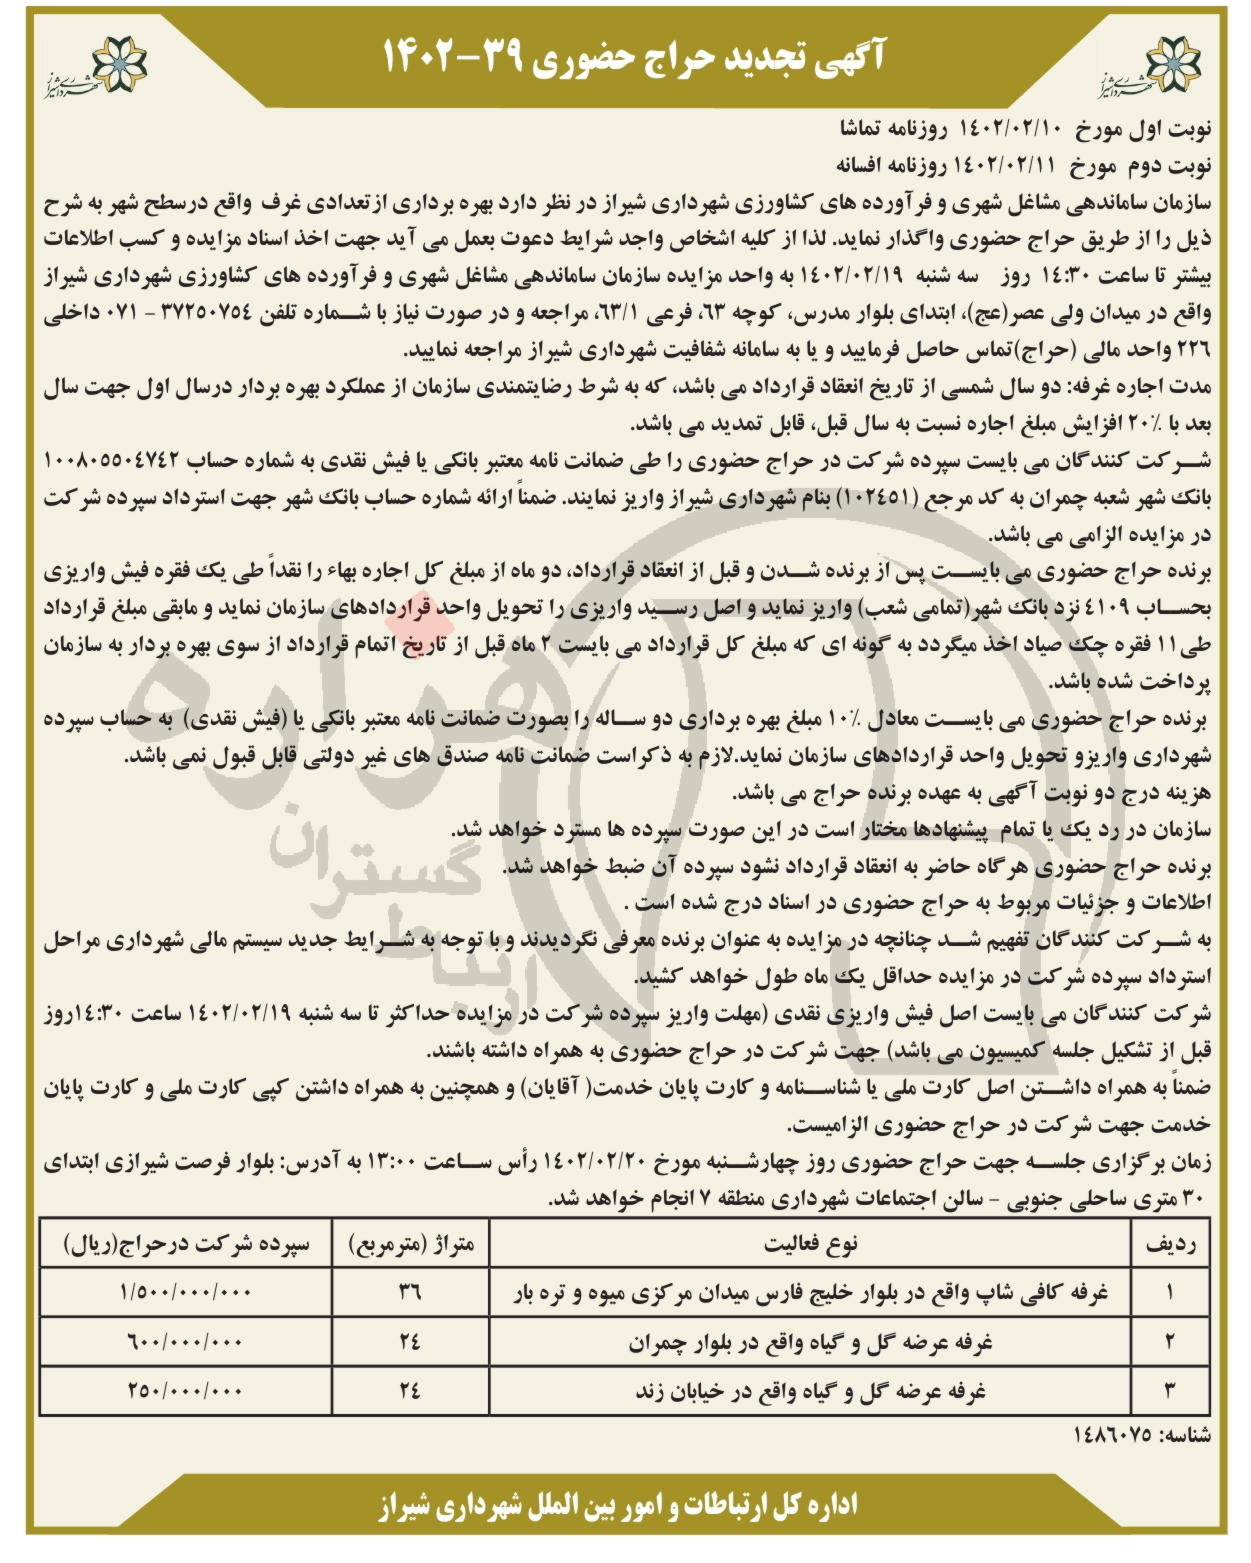 آگهی تجدید حراج حضوری ۳۹-۱۴۰۲
شهرداری شیراز
شهرداری شیراز
نوبت اول مورخ ۱۴۰۲/۰۲/۱۰ روزنامه تماشا
نوبت دوم مورخ ۱۴۰۲/۰۲/۱۱ روزنامه افسانه
سازمان ساماندهی مشاغل شهری و فرآورده های کشاورزی شهرداری شیراز در نظر دارد بهره برداری ازتعدادی غرف واقع درسطح شهر به شرح
ذیل را از طریق حراج حضوری واگذار نماید. لذا از کلیه اشخاص واجد شرایط دعوت بعمل می آید جهت اخذ اسناد مزایده و کسب اطلاعات
بیشتر تا ساعت ۱۴:۳۰ روز سه شنبه ۱۴۰۲/۰۲/۱۹ به واحد مزایده سازمان ساماندهی مشاغل شهری و فرآورده های کشاورزی شهرداری شیراز
واقع در میدان ولی عصر(عج)، ابتدای بلوار مدرس، کوچه ۶۳، فرعی ۶۳/۱، مراجعه و در صورت نیاز با شماره تلفن ۳۷۲۵۰۷۵۴ - ۰۷۱ داخلی
۲۲۶ واحد مالی (حراج)تماس حاصل فرمایید و یا به سامانه شفافیت شهرداری شیراز مراجعه نمایید.
مدت اجاره غرفه: دو سال شمسی از تاریخ انعقاد قرارداد می باشد، که به شرط رضایتمندی سازمان از عملکرد بهره بردار درسال اول جهت سال
بعد با ۲۰٪ افزایش مبلغ اجاره نسبت به سال قبل، قابل تمدید می باشد.
شرکت کنندگان می بایست سپرده شرکت در حراج حضوری را طی ضمانت نامه معتبر بانکی یا فیش نقدی به شماره حساب ۱۰۰۸۰۵۵۰۴۷۴۲
بانک شهر شعبه چمران به کد مرجع (۱۰۲۴۵۱) بنام شهرداری شیراز واریز نمایند. ضمناً ارائه شماره حساب بانک شهر جهت استرداد سپرده شرکت
در مزایده الزامی می باشد.
برنده حراج حضوری می بایست پس از برنده شدن و قبل از انعقاد قرارداد، دو ماه از مبلغ کل اجاره بهاء را نقداً طی یک فقره فیش واریزی
بحساب ۴۱۰۹ نزد بانک شهر(تمامی شعب) واریز نماید و اصل رسید واریزی را تحویل واحد قراردادهای سازمان نماید و مابقی مبلغ قرارداد
طی۱۱ فقره چک صیاد اخذ میگردد به گونه ای که مبلغ کل قرارداد می بایست ۲ ماه قبل از تاریخ اتمام قرارداد از سوی بهره بردار به سازمان
پرداخت شده باشد.
برنده حراج حضوری می بایست معادل ۱۰٪ مبلغ بهره برداری دو ساله را بصورت ضمانت نامه معتبر بانکی یا (فیش نقدی) به حساب سپرده
شهرداری واریزو تحویل واحد قراردادهای سازمان نماید.لازم به ذکراست ضمانت نامه صندق های غیر دولتی قابل قبول نمی باشد.
هزینه درج دو نوبت آگهی به عهده برنده حراج می باشد.
سازمان در رد یک یا تمام پیشنهادها مختار است در این صورت سپرده ها مسترد خواهد شد.
برنده حراج حضوری هرگاه حاضر به انعقاد قرارداد نشود سپرده آن ضبط خواهد شد.
اطلاعات و جزئیات مربوط به حراج حضوری در اسناد درج شده است .
به شرکت کنندگان تفهیم شد چنانچه در مزایده به عنوان برنده معرفی نگردیدند و با توجه به شرایط جدید سیستم مالی شهرداری مراحل
استرداد سپرده شرکت در مزایده حداقل یک ماه طول خواهد کشید.
شرکت کنندگان می بایست اصل فیش واریزی نقدی (مهلت واریز سپرده شرکت در مزایده حداکثر تا سه شنبه ۱۴۰۲/۰۲/۱۹ ساعت ۱۴:۳۰روز
قبل از تشکیل جلسه کمیسیون می باشد) جهت شرکت در حراج حضوری به همراه داشته باشند.
ضمناً به همراه داشتن اصل کارت ملی یا شناسنامه و کارت پایان خدمت( آقایان) و همچنین به همراه داشتن کپی کارت ملی و کارت پایان
خدمت جهت شرکت در حراج حضوری الزامیست.
زمان برگزاری جلسه جهت حراج حضوری روز چهارشنبه مورخ ۱۴۰۲/۰۲/۲۰ رأس ساعت ۱۳:۰۰ به آدرس: بلوار فرصت شیرازی ابتدای
۳۰ متری ساحلی جنوبی - سالن اجتماعات شهرداری منطقه ۷ انجام خواهد شد.
ردیف نوع فعالیت متراژ (مترمربع) سپرده شرکت درحراج(ریال)
۱ غرفه کافی شاپ واقع در بلوار خلیج فارس میدان مرکزی میوه و تره بار ۳۶ ۱/۵۰۰/۰۰۰/۰۰۰
۲ غرفه عرضه گل و گیاه واقع در بلوار چمران ۲۴ ۶۰۰/۰۰۰/۰۰۰
۳ غرفه عرضه گل و گیاه واقع در خیابان زند ۲۴ ۲۵۰/۰۰۰/۰۰۰
شناسه: ۱۴۸۶۰۷۵
اداره کل ارتباطات و امور بین الملل شهرداری شیراز
هزاره
گستران
ارتباط